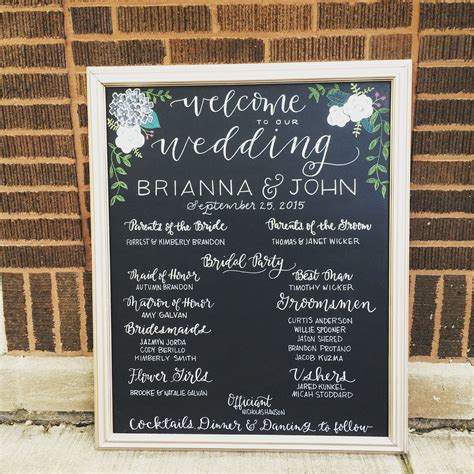 welcome
TO OUR
wedding
BRIANNA & JOHN
September 25, 2015
Parents of the Bride
FORREST & KIMBERLY BRANDON
Parents of the Groom
THOMAS & JANET WICKER
Bridal Party
Maid of Honor
AUTUMN BRANDON
Matron of Honor
AMY GALVAN
Bridesmaids
JAZMYN JORDA
CODY BERILLO
KIMBERLY SMITH
Flower Girls
BROOKE & NATALIE GALVAN
Best Man
TIMOTHY WICKER
Groomsmen
CURTIS ANDERSON
WILLIE SPOONER
JASON SHERED
BRANDON PROTANO
JACOB KUZMA
Ushers
JARED KUNKEL
MICAH STODDARD
Officiant
NICHOLAS HANSON
Cocktails Dinner & Dancing to follow